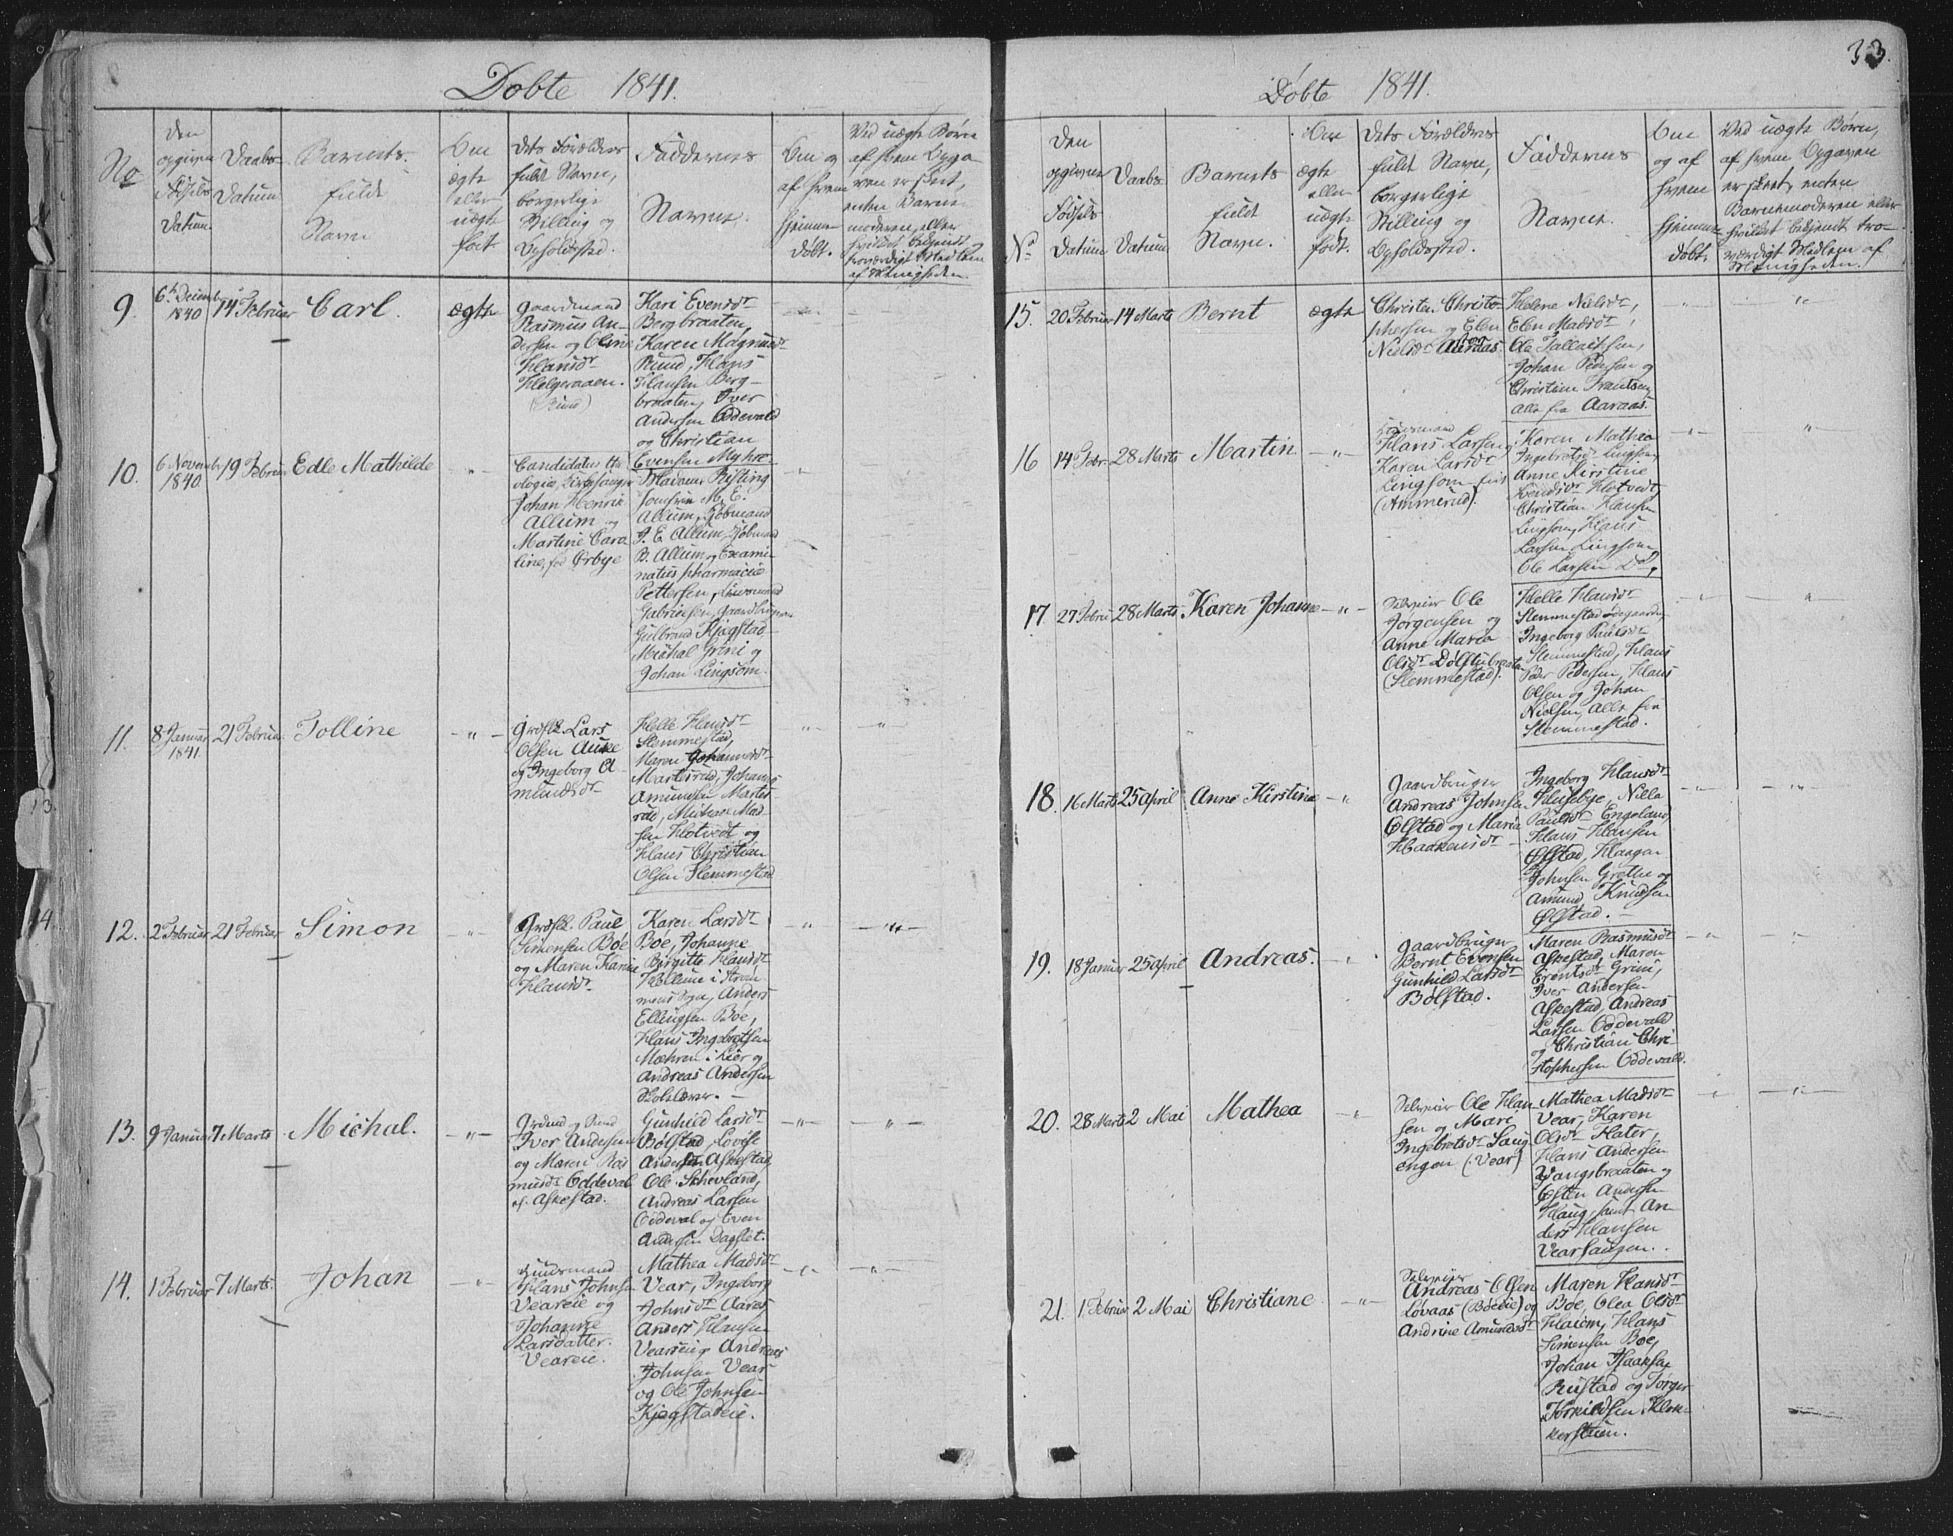 Døbte 1841.
No
Den opgivne Fødsels Datum
Daabs Datum
Barnets fulde Navn
Om ægte eller uægte født.
Dets Forældres fulde Navn, borgerlige Stilling og Opholdssted.
Faddernes Navne.
Om og af hvem hjemmedøbt.
Ved uægte Børn af hvem Opgaven er skeet, enten Barnemoderen, eller hvilket bekjendt troværdigt Medlem af Menigheden.
9.
6te Decemb. 1840
14 Februar
Carl.
ægte
Gaardmand
Rasmus An-
dersen og Oline
Hansdr
Helgeraaen.
Kari Evensdr
Bergbraaten,
Karen Magnusdr
Rund, Hans
Hansen Berg-
braaten, Iver
Andersen Oddevald
og Christian
Evensen Myhre
10.
6 Novemb. 1840
19 Februar
Edle Mathilde
Candidatus the-
ologiæ, Kirkesanger
Johan Henrik
Allum og
Martine Caro
line, fød Ørbye
Madame Risting
Jomfru M. C.
Allum, Kjøbmand
P. E. Allum, Kjøbmand
B. Allum, Exami-
natus pharmaciæ
Pettersen, Lieutenand
Gabrielsen, Gaardbrugerne
Gulbrand Kjøgstad
Michal Grini og
Johan Lingsom.
11.
8 Januar 1841.
21 Februar
Tolline
Grdfbr. Lars
Olsen Aune
og Ingeborg A-
mundsdr
Helle Hansdr
Slemmestad,
Maren Johannesdr
Martesrud, Johannes
Amundsen Martes-
rud, Michael Mad-
sen Hotvedt og
Hans Christian
Olsen Slemmestad
12.
2 Februar
21 Februar
Simon
Grdfbr. Paul
Simensen Bøe
og Maren Karine
Hansdr
Karen Larsdr
Bøe, Johanne
Birgitte Hansdr
Hellum i Strøm
mens Sogn, Anders
Ellingsen Bøe,
Hans Ingebretsen
Mæhren i Lier og
Andreas Andersen
Skolelærer.
13.
9 Januar
7 Marts
Michal.
Iver Andersen
og Maren Ras
musdr Oddeval
Askestad.
Gunhild Larsdr
Bølstad, Lovise
Andersdr Askestad,
Ole Skhovland,
Andreas Larsen
Oddeval og Even
Andersen Dagslet.
14.
1 Februar
7 Marts.
Johan
Huusmand
Hans Johnsen
Veareie og
Johanne
Larsdatter
Veareie.
Mathea Madsdr
Vear, Ingeborg
Johnsdr Aares,
Anders Hansen
Veareie, Andreas
Johnsen Vear
og Ole Johnsen
Kjøgstadeie.
33.
Døbte 1841.
No
Den opgivne Fødsels Datum
Daabs Datum
Barnets fulde Navn.
Om ægte eller uægte født.
Dets Forældres fulde Navn, borgerlige Stilling og Opholdssted.
Faddernes Navne.
Om og af hvem hjemmedøbt.
Ved uægte Børn, af hvem Opgaven er skeet, enten Barnemoderen eller hvilket bekjent troværdigt Medlem af Menigheden.
15.
20 Februar
14 Marts
Bernt
ægte
Christen Christo-
phersen og Elen
Nielsdr Aaraas.
Helene Nielsdr,
Elen Madsdr,
Ole Tallaksen,
Johan Pedersen og
Christian Frantsen,
alle fra Aaraas.
16
14 Febr.
28 Marts
Martin
Huusmand
Hans Larsen og
Karen Larsdr
Lingsom-eie
(Ammerud).
Karen Mathea
Ingebretsdr Lingsom,
Anne Kirstine
Svendsdr Hotvedt,
Christian Hansen
Lingsom, Hans
Larsen Lingsom
Ole Larsen Do,
17.
27 Febru
28 Marts
Karen Johanne
Selveier Ole
Jørgensen og
Anne Maria
Olsdr Dølstubraaten
(Slemmestad).
Helle Hansdr
Slemmestad-ødegaarden,
Ingeborg Paulsdr
Slemmestad, Hans
Peder Pedersen, Hans
Olsen og Johan
Nielsen, alle fra
Slemmestad.
18.
16 Marts
25 April
Anne Kirstine
Gaardbruger
Andreas Johnsen
Ølstad og Maria
Haakensdr
Ingeborg Hansdr
Husebye, Nilla
Paulsdr Engeland,
Hans Hansen
Ølstad, Haagen
Johnsen Grette og
Amund Knudsen
Ølstad.
19.
18 Januar
25 April
Andreas.
Gaardbruger
Bernt Evensen
Gunhild Larsdr
Bølstad.
Maren Rasmusdr
Askestad, Maren
Erentsdr Grini,
Iver Andersen
Askestad, Andreas
Larsen Oddevald
og Christian Chri-
stophersen Oddevald.
20.
28 Marts
2 Mai
Mathea
Selveier Ole Han-
sen og Mari
Ingebretsdr Saug-
engen (Vear)
Mathea Madsdr
Vear, Karen
Olsdr Hater,
Hans Andersen
Vangsbraaten og
Østen Andersen
Haug, samt An-
ders Hansen
Vearsaugen.
21.
1 Februar
2 Mai
Christiane
Selveier
Andreas Olsen
Løvaas (Bøeeie) og
Andrine Amundsdr
Maren Hansdr
Bøe, Olea Olsdr
Haiem, Hans
Simensen Bøe,
Johan Isaksen
Rustad og Torger
Torkildsen Klok-
kerstuen.